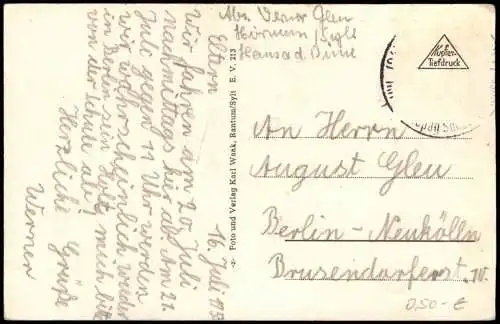 Abs. Werner Gleu
Hörnum / Sylt
Hansa d. Düne
Kupfer-
Tiefdruck
16. Juli 1953
Eltern
Wir fahren am 20. Juli
nachmittags hier ab. Am 21.
Juli gegen 11 Uhr werden
wir wahrscheinlich wieder
in Berlin sein. Holt mich bitte
von der Schule ab.
Herzliche Grüße
Werner
-2- Foto und Verlag Karl Waak, Rantum/Sylt E. V. 213
An Herrn
August Gleu
Berlin - Neukölln
Brusendorferst. 10.
0,50 - €